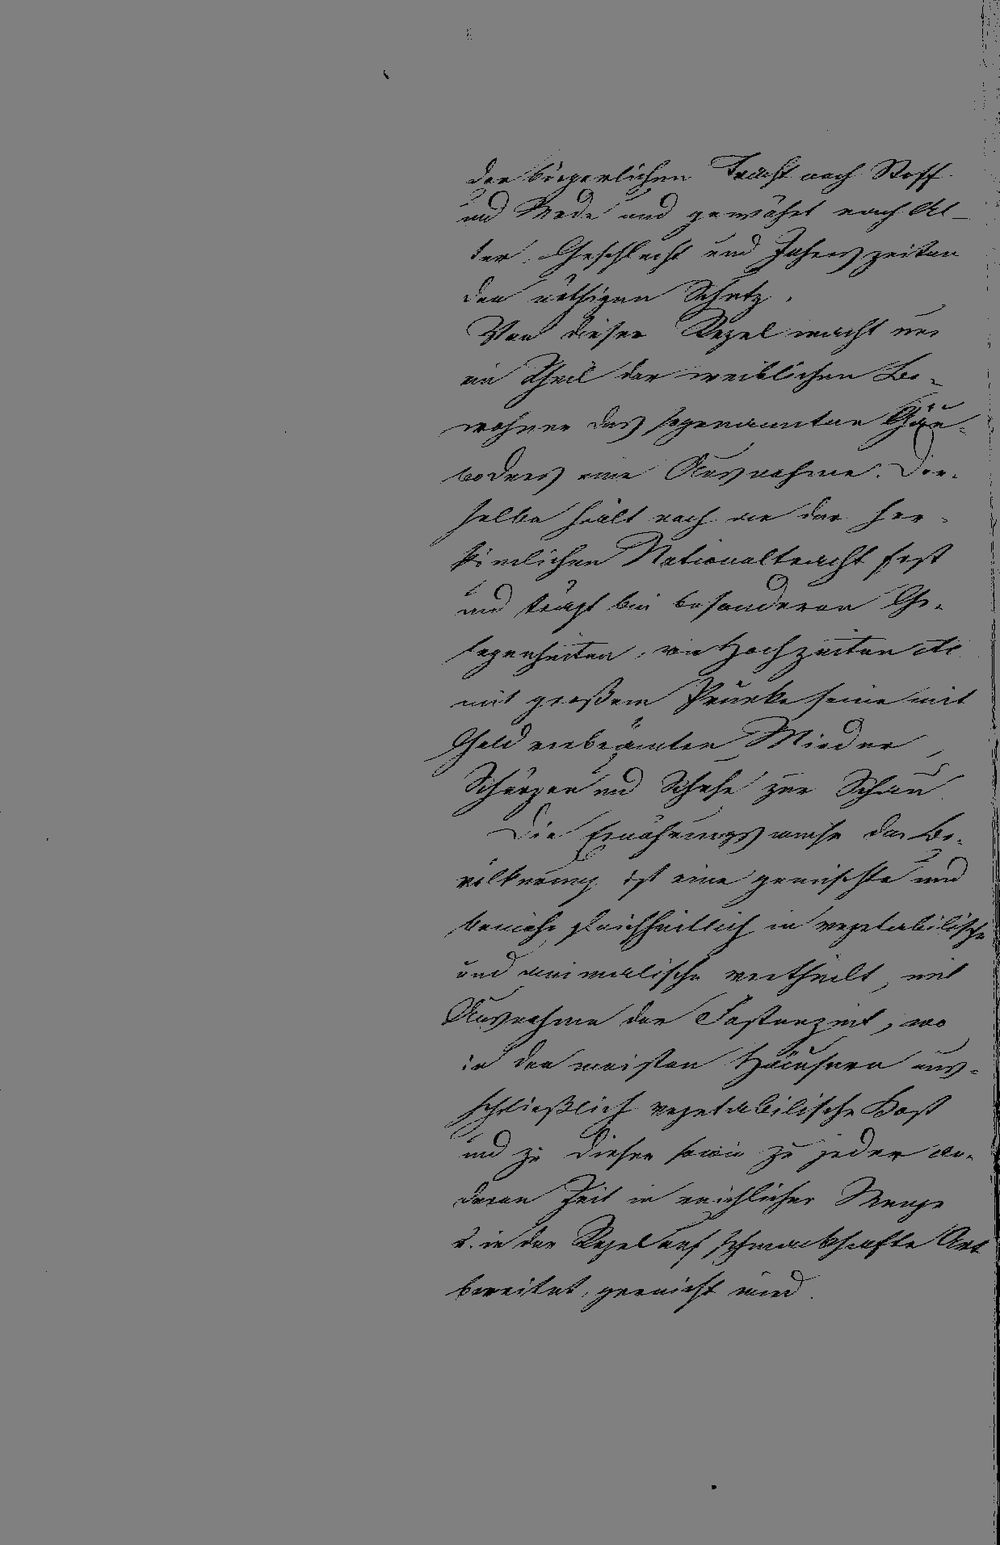 der bürgerlichen Tracht nach Stoff
und Mode und gewährt nach Al-
ter, Geschlecht und Jahreszeiten
den nöthigen Schutz.
Von dieser Regel macht nur
ein Theil der weiblichen Be-
wohner des sogenannten Gäu-
bodens eine Ausnahme. Der-
selbe hält noch an der her-
kömlichen Nationaltracht fest
und trägt bei besonderen Ge-
legenheiten, wie Hochzeiten etc
mit großem Prunke seine mit
Gold verbrämten Mieder,
Schürzen und Schuhe zur Schau.
Die Ernährungsweise der Be-
völkerung ist eine gemischte und
beinahe gleichheitlich in vegetabilische
und animalische vertheilt, mit
Ausnahme der Fastenzeit, wo
in den meisten Häusern aus-
schließlich vegetabilische Kost
und zu dieser sowie zu jeder an-
deren Zeit in reichlicher Menge
u. in der Regel auf schmackhafte Art
bereitet, gereicht wird.